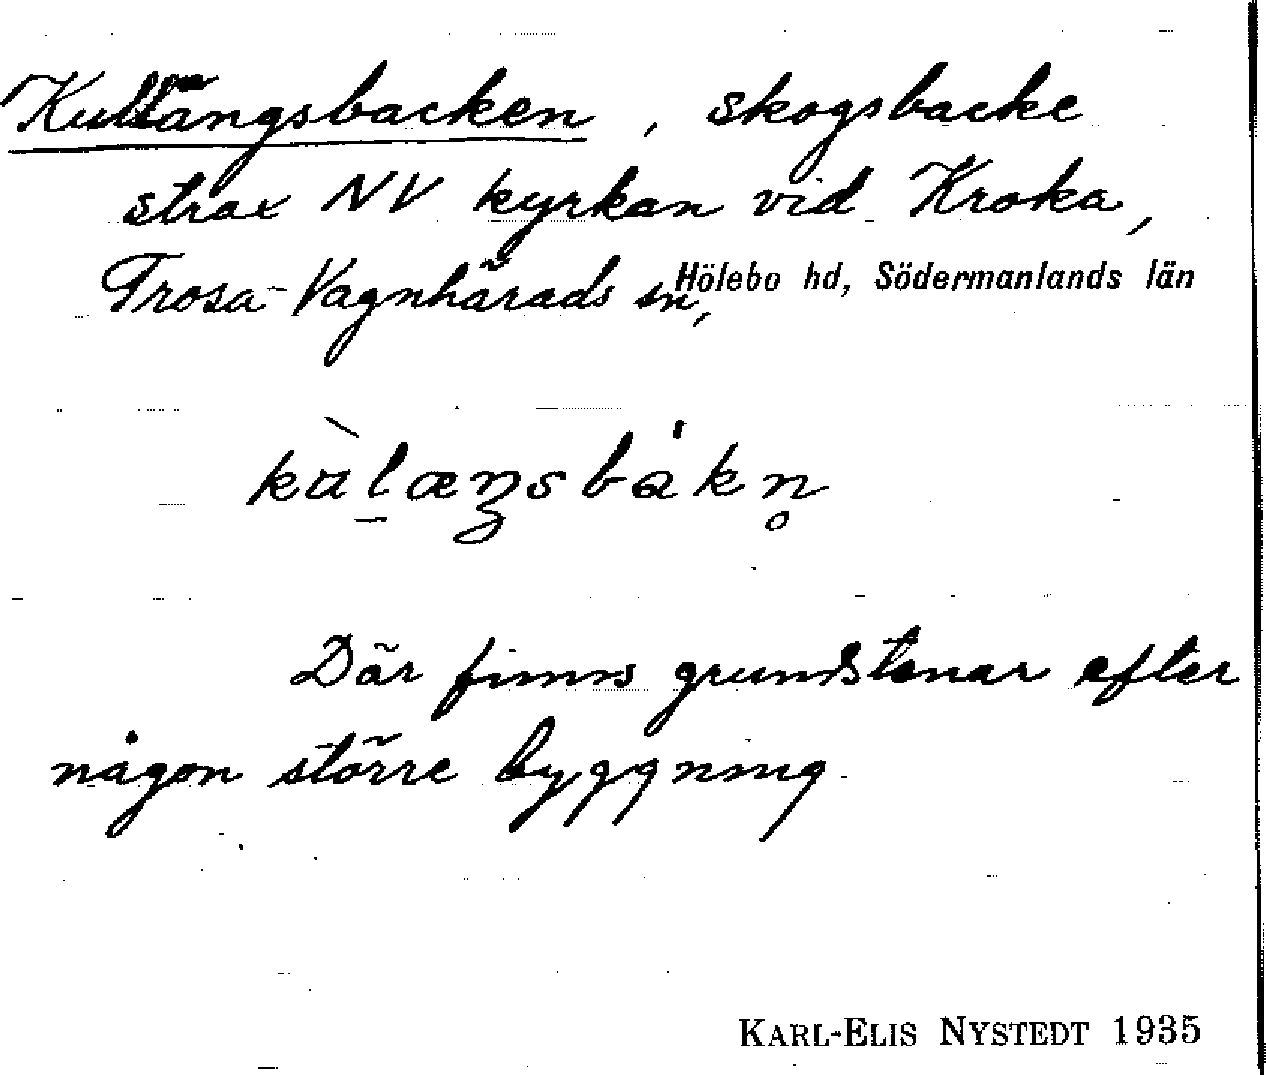 Kullängsbacken, skogsbacke
strax NV kyrkan vid Kroka,
Trosa-Vagnhärads sn, Hölebo hd, Södermanlands län
Där finns grundstenar efter
någon större byggning.
KARL-ELIS NYSTEDT 1935